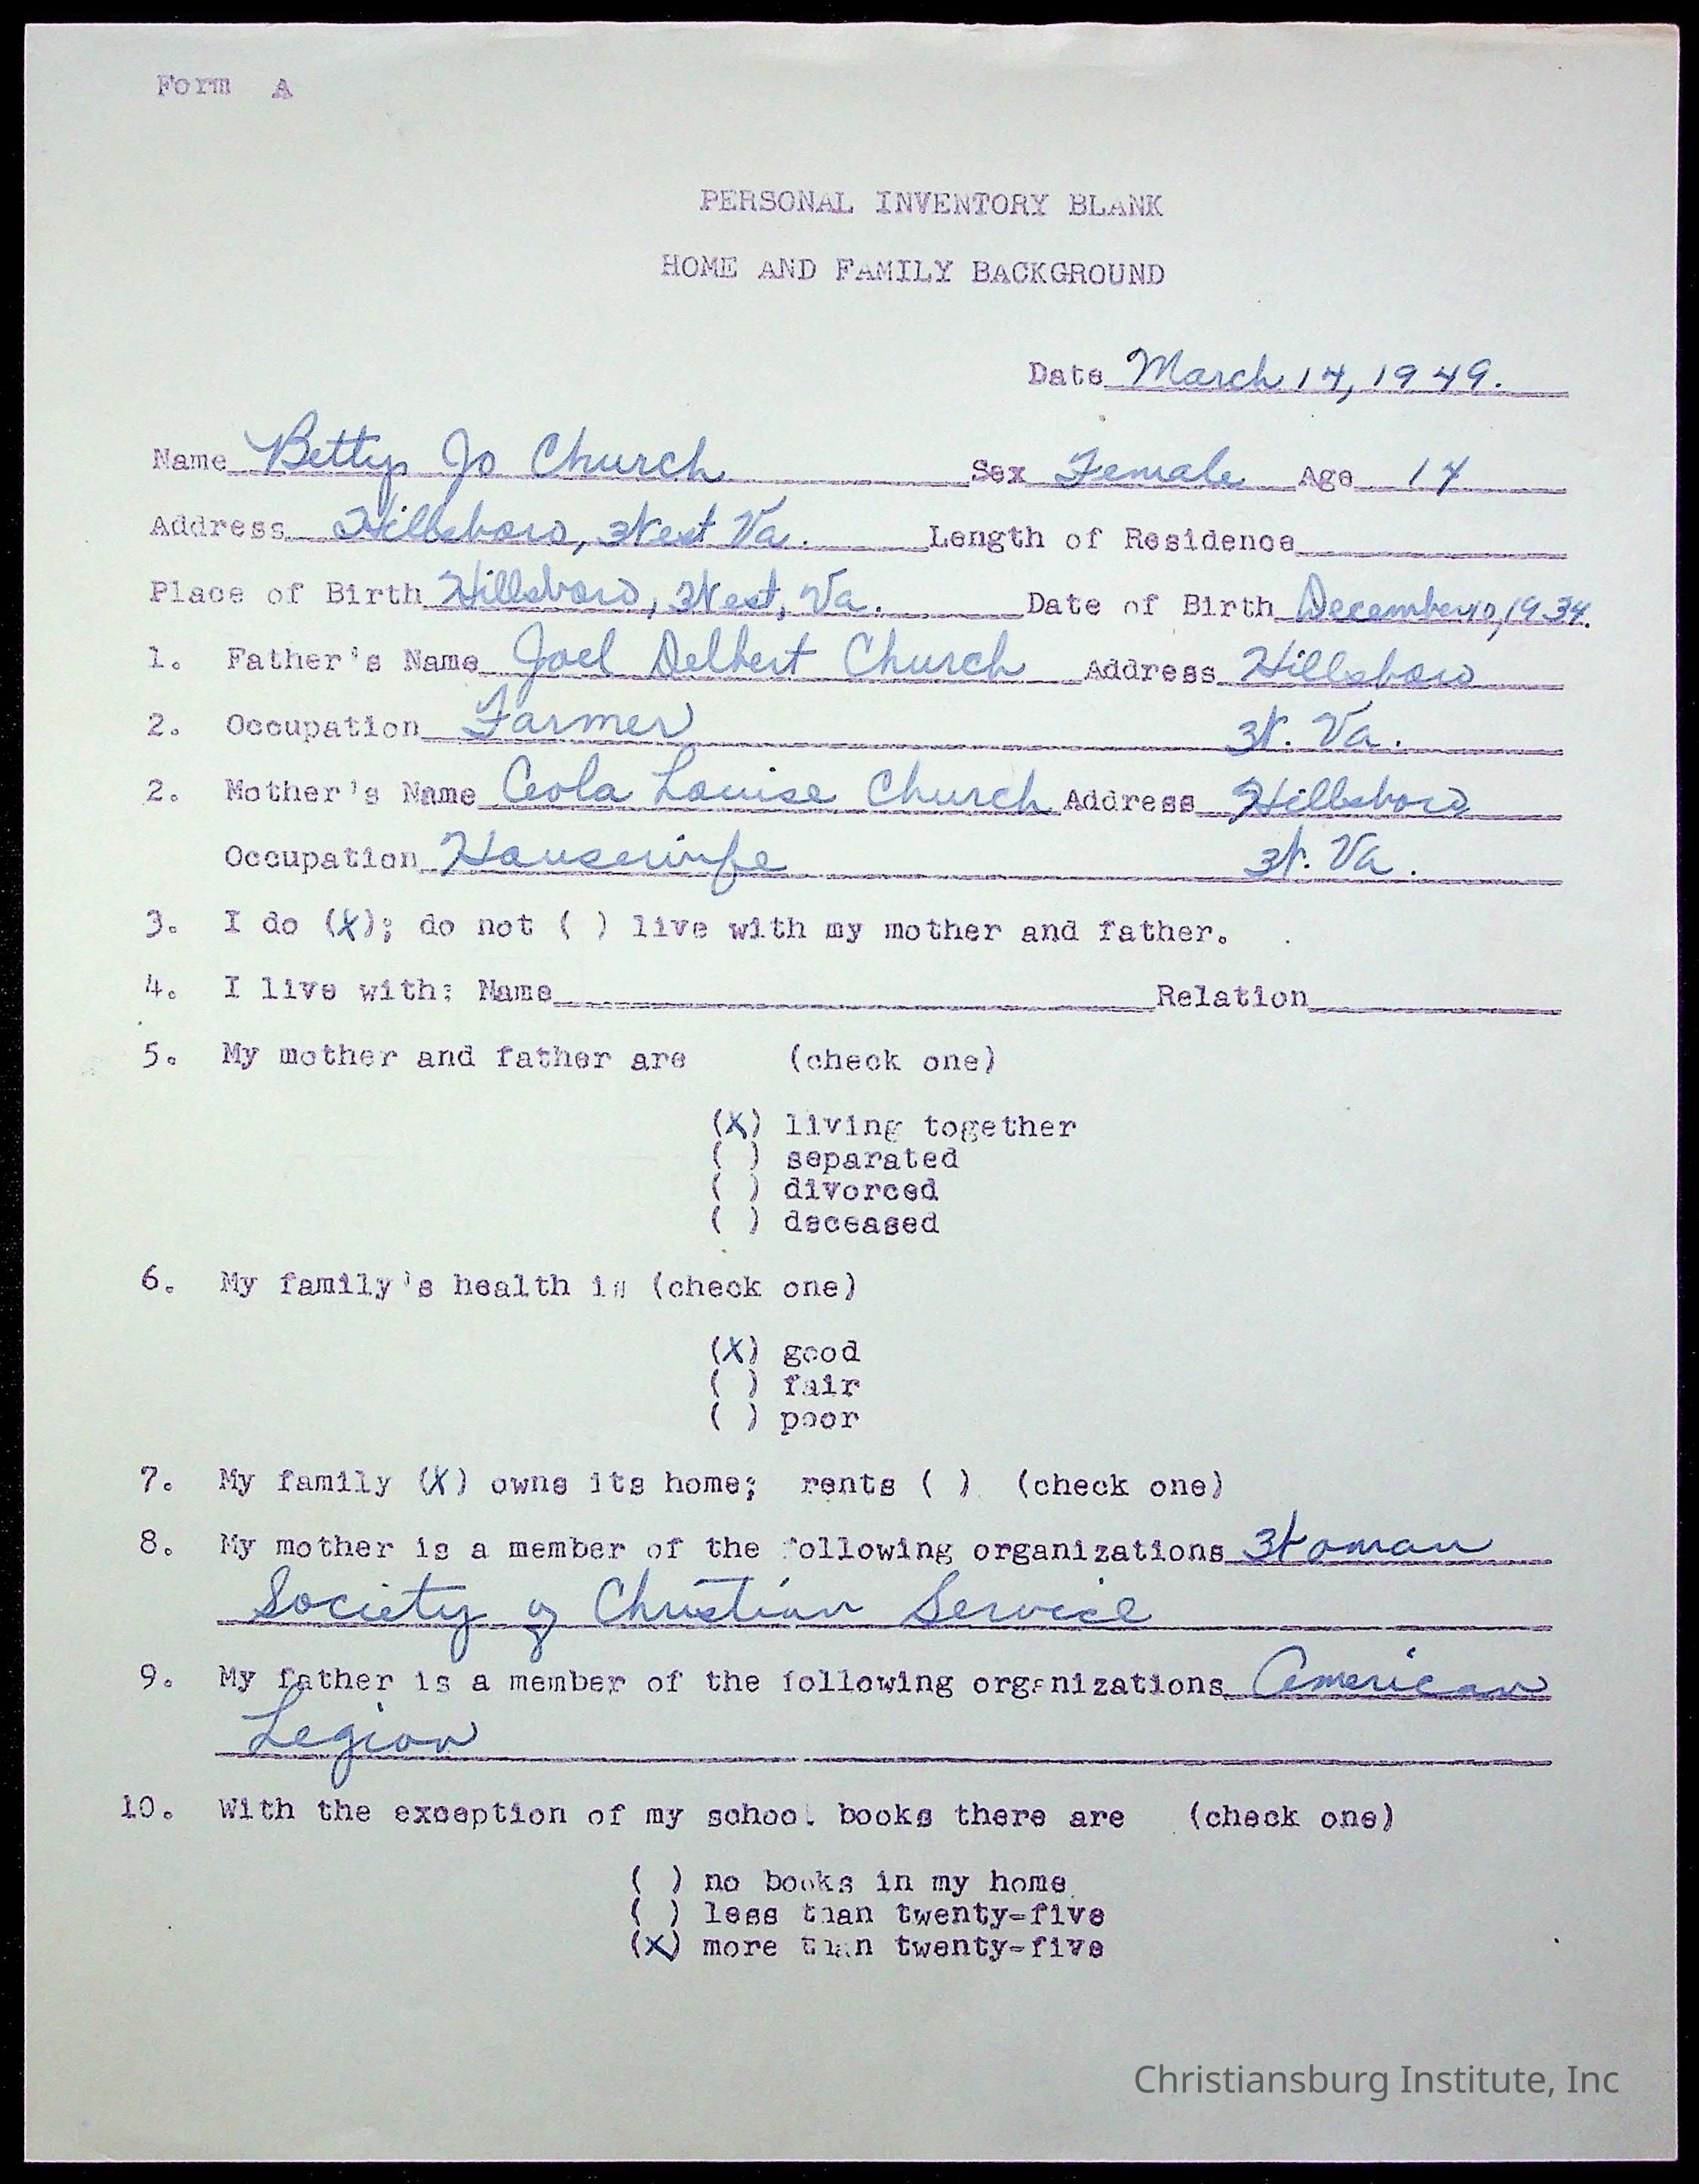 Form A
PERSONAL INVENTORY BLANK
HOME AND FAMILY BACKGROUND
Date March 14, 1949.
Name Betty Jo Church Sex Female Age 14
Address Hillsboro, West Va. Length of Residence
Place of Birth Hillsboro, West, Va. Date of Birth December 10, 1934.
1. Father's Name Joel Delbert Church Address Hillsboro
2. Occupation Farmer W. Va.
2. Mother's Name Ceola Louise Church Address Hillsboro
Occupation Housewife W. Va.
3. I do (X); do not ( ) live with my mother and father.
4. I live with: Name Relation
5. My mother and father are (check one)
(X) living together
( ) separated
( ) divorced
( ) deceased
6. My family's health is (check one)
(X) good
( ) fair
( ) poor
7. My family (X) owns its home; rents ( ) (check one)
8. My mother is a member of the following organizations Woman
Society of Christian Service
9. My father is a member of the following organizations American
Legion
10. With the exception of my school books there are (check one)
( ) no books in my home
( ) less than twenty-five
(X) more than twenty-five
Christiansburg Institute, Inc